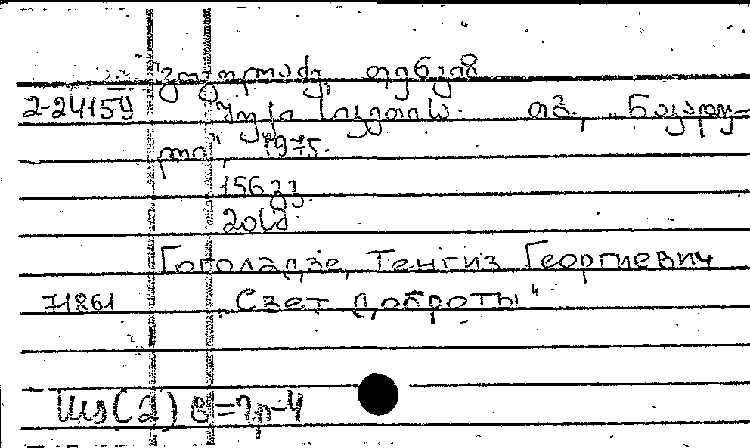 გოგოლაძე, თენგიზ
2-24159 შუქი სიკეთისა. თბ., „ნაკადუ-
ლი", 1975.
156 გვ.
Гоголадзе, Тенгиз Георгиевич
71861 „Свет доброты"